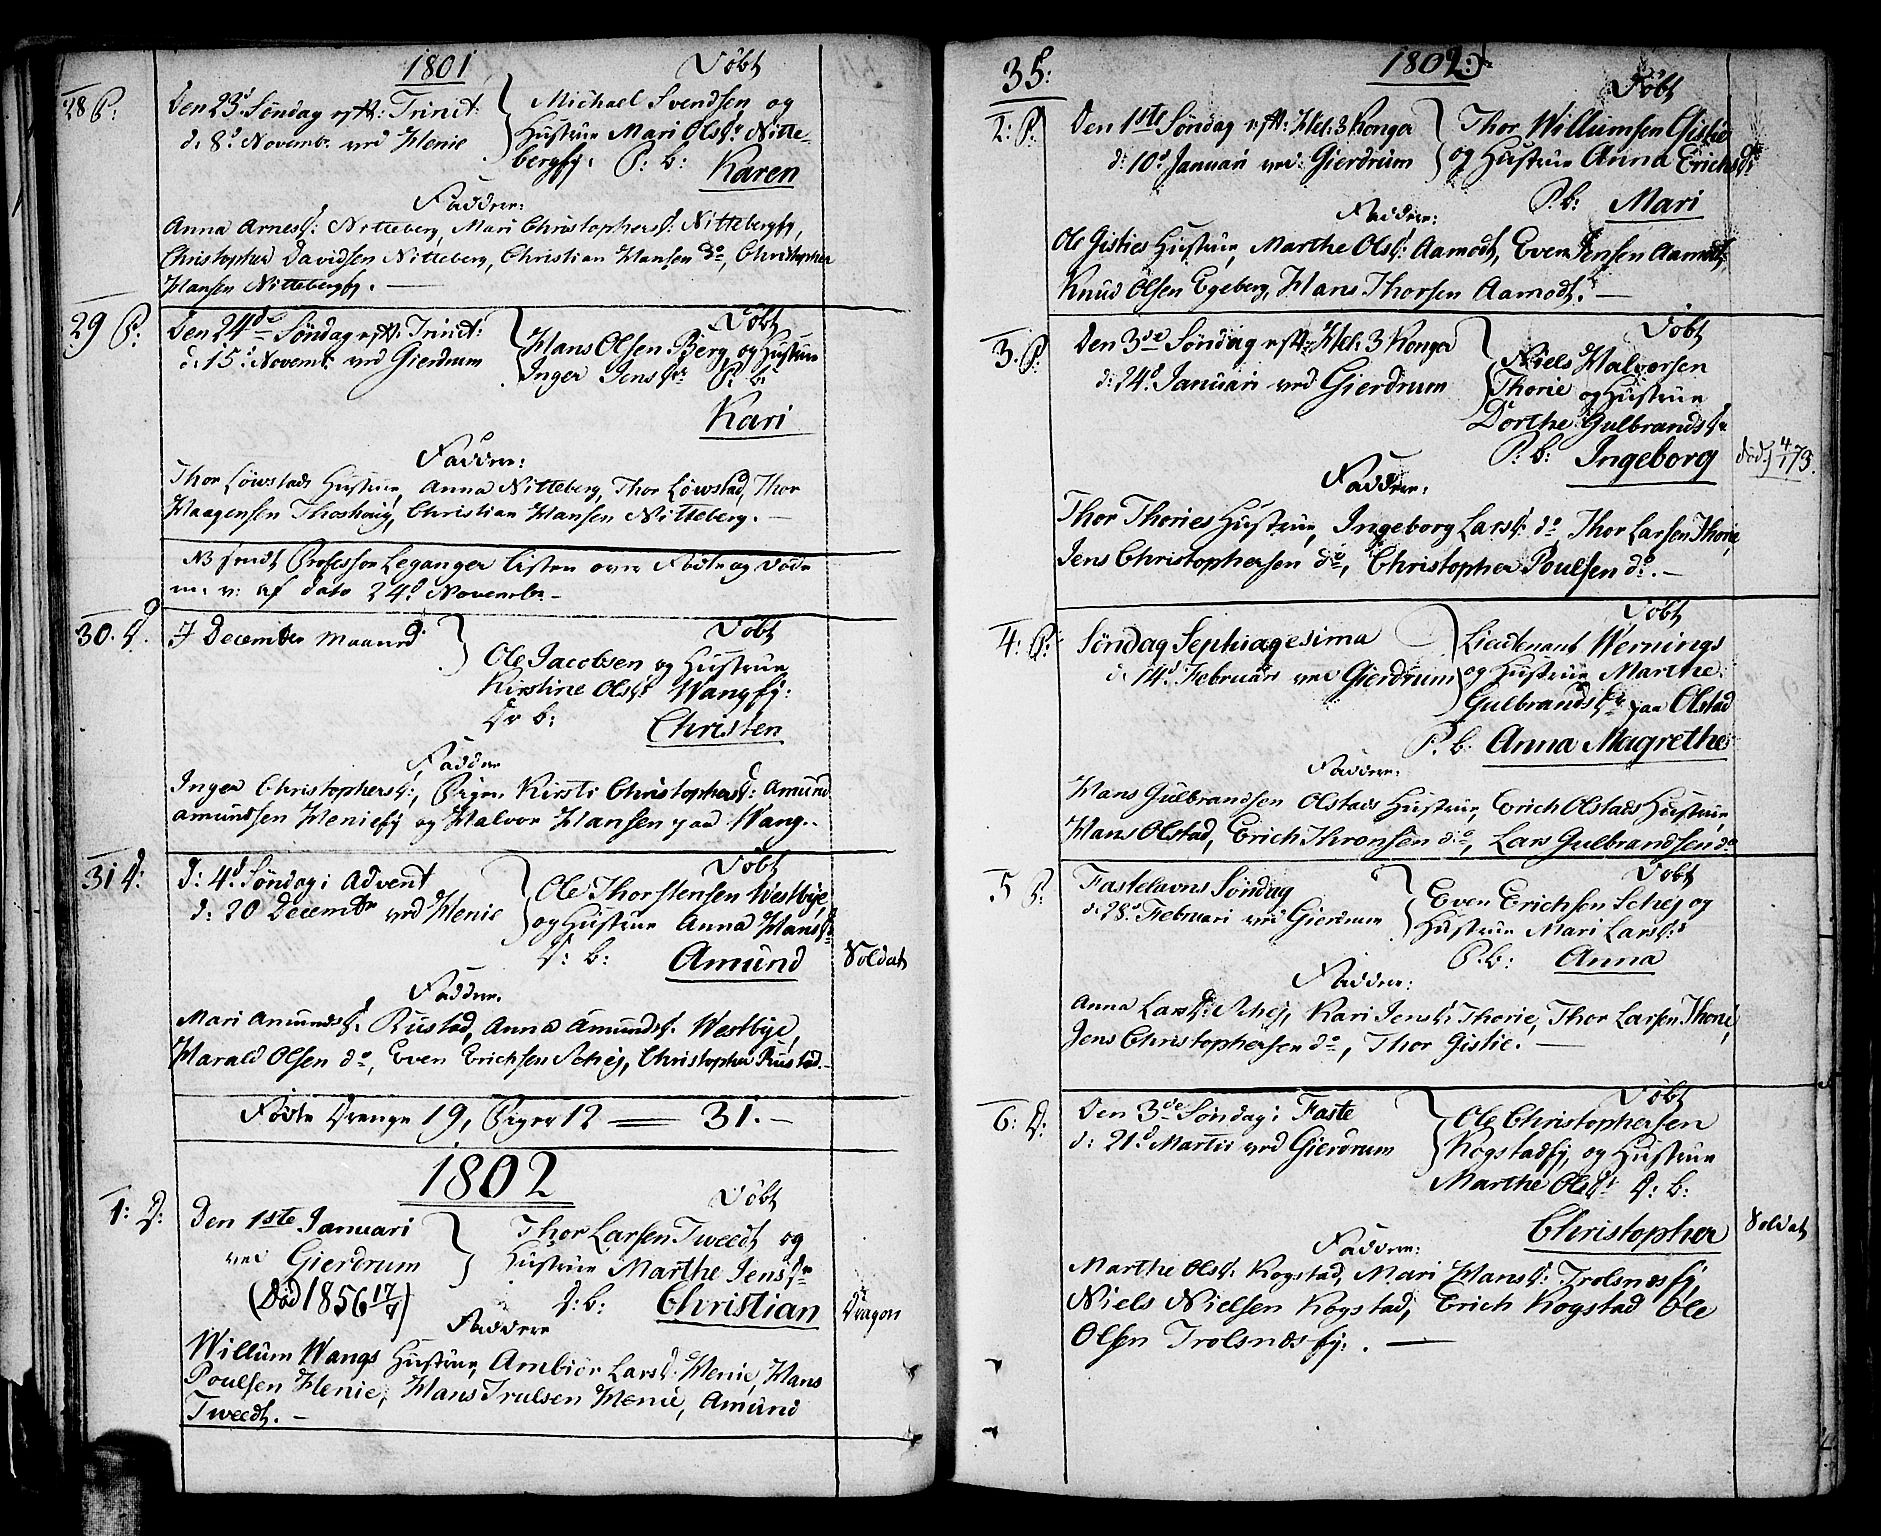 1801
Døbt
28 P:
Den 23d Søndag eftt: Trinit:
d: 8d Novembr ved Henie
Michael Svendsen og
Hustrue Mari Olsd: Nitte-
bergfj: P: b: Karen
Faddere:
Anna Arnesd: Nitteberg, Mari Christophersd: Nittebergfj,
Christopher Davidsen Nitteberg, Christian Hansen do, Christopher
Hansen Nittebergfj. —
29 P:
Den 24de Søndag eftt: Trinit:
d: 15d Novemb: ved Gierdrum
Døbt
Hans Olsen Berg, og Hustrue
Inger Jensdr P: b:
Kari
Faddere:
Thor Løwstads Hustrue, Anna Nitteberg, Thor Løwstad, Thor
Haagensen Thoshoug, Christian Hansen Nitteberg. —
NB sendt Professor Leganger Listen over Fødte og Døde
m. v: af dato 24d Novembr —
30. D.
I December Maaned
Døbt
Ole Jacobsen og Hustrue
Kirstine Olsdr Wangfj:
Dr b: Christen
Faddere
Inger Christophersd:, Pigen Kirsti Christophersd: Amund
Amundsen Heniefj og Halvor Hansen paa Wang.
31 D:
d: 4d Søndag i Advent
d: 20 Decembr ved Henie
Døbt
Ole Thorstensen Westbye,
og Hustrue Anna Hansdr
D: b: Amund
Soldat
Faddere.
Mari Amundsd: Rustad, Anna Amundsd. Westbye,
Harald Olsen do, Even Erichsen Schej, Christopher Rustad. —
Fødte Drenge 19, Piger 12 — 31. —
1802
1: D:
Den 1ste Januari
ved Gierdrum
(Død 1856 17/4)
Døbt
Thor Larsen Tweedt og
Hustrue Marthe Jensdr
D: b: Christian
Dragon
Faddere
Willum Wangs Hustrue, Ambiør Larsd: Henie, Hans
Poulsen Henie, Hans Trulsen Henie, Amund
Tweedt. —
35:
1802:
Døbt
2: P:
Den 1ste Søndag eftt: Hel: 3 Konger
d: 10d Januari ved Gierdrum
Thor Willumsen Gistie
og Hustrue Anna Erichsdr
P. b: Mari
Faddere:
Ole Gisties Hustrue, Marthe Olsd: Aamodt, Even Jensen Aamodt,
Knud Olsen Egeberg, Hans Thorsen Aamodt. —
3. P:
Den 3de Søndag eftt: Hel: 3 Konger
d: 24d Januari ved Gierdrum
Døbt
Niels Halvorsen
Thorie og Hustrue
Dorthe Gulbrandsdr
P: b: Ingeborg
død 4/1 73.
Faddere:
Thor Thories Hustrue, Ingeborg Larsd: do Thor Larsen Thorie,
Jens Christophersen do, Christopher Poulsen do. —
4: P:
Søndag Septuagesima
d: 14d Februari ved Gierdrum
Døbt
Lieutenant Wernings
og Hustrue Marthe
Gulbrandsdr paa Olstad
P. b: Anna Magrethe
Faddere:
Hans Gulbrandsen Olstads Hustrue, Erich Olstads Hustrue,
Hans Olstad, Erich Thronsen do, Lars Gulbrandsen do
5 P:
Fastelavns Søndag
d: 28d Februari ved Gierdrum
Døbt
Even Erichsen Schej og
Hustrue Mari Larsdr
P. b: Anna
Faddere:
Anna Larsd: Schej, Kari Jensd: Thorie, Thor Larsen Thorie,
Jens Christophersen do, Thor Gistie. —
6: D:
Den 3de Søndag i Faste
d: 21d Martii ved Gierdrum
Døbt
Ole Christophersen
Kogstadfj, og Hustrue
Marthe Olsdr D: b:
Christopher
Soldat
Faddere:
Marthe Olsd: Kogstad, Mari Hansd: Trolsnesfj,
Niels Nielsen Kogstad, Erich Kogstad Ole
Olsen Trolsnesfj: . —